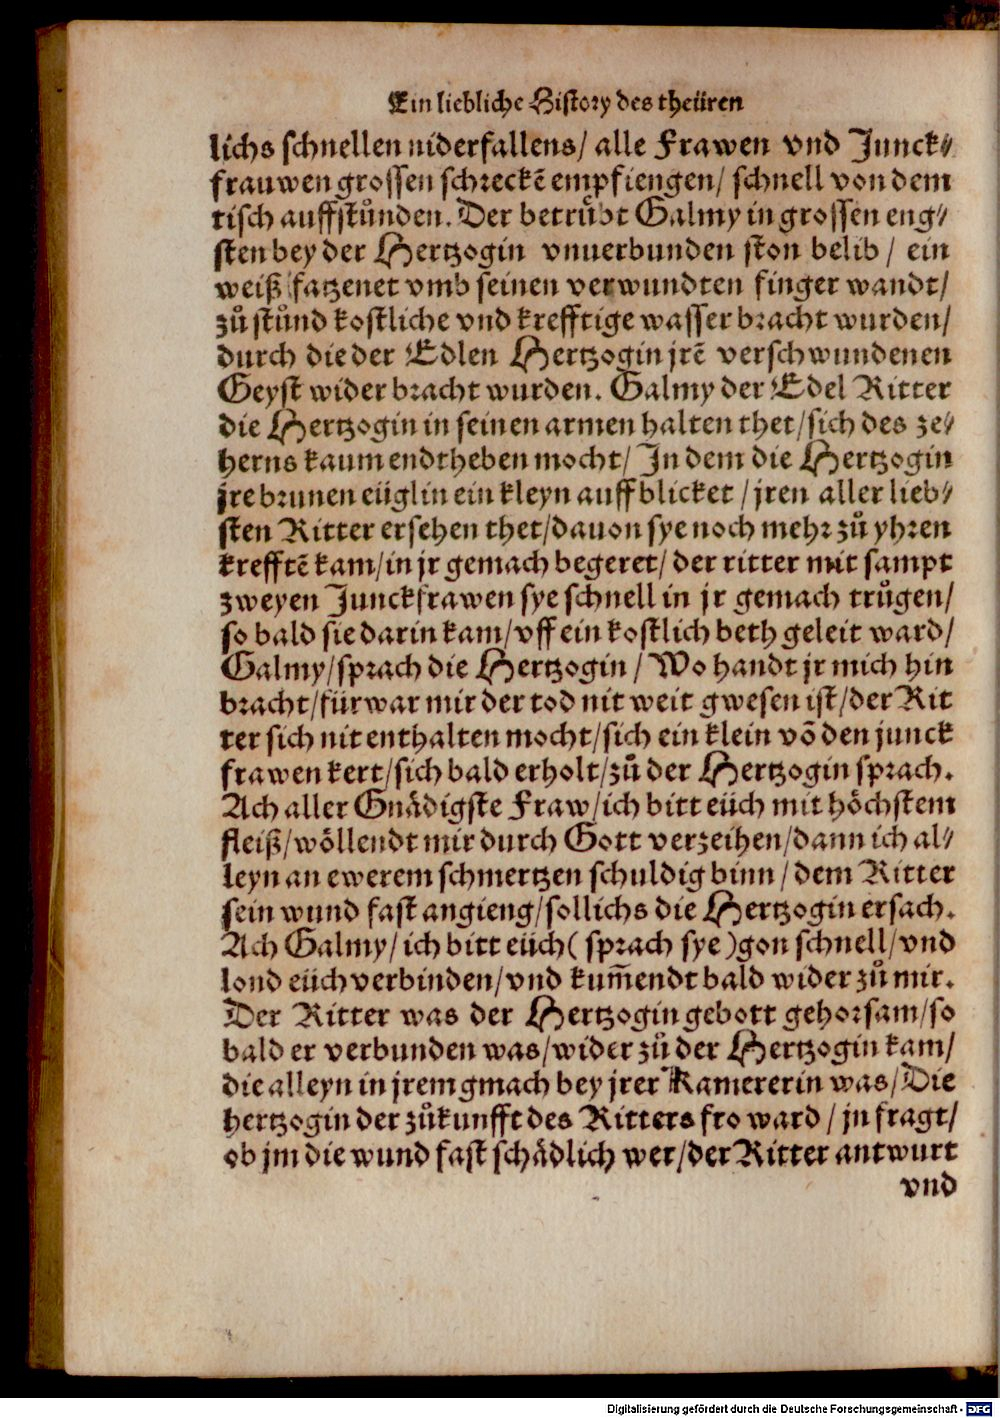 Ein liebliche History des theüren
lichs schnellen niderfallens/ alle Frawen vnd Junck⸗
frauwen grossen schreckẽ empfiengen/ schnell von dem
tisch auffstůnden. Der betrůbt Galmy in grossen eng⸗
sten bey der Hertzogin vnuerbunden ston belib/ ein
weiß fatzenet vmb seinen verwundten finger wandt/
zů stůnd kostliche vnd krefftige wasser bracht wurden/
durch die der Edlen Hertzogin jrẽ verschwundenen
Geyst wider bracht wurden. Galmy der Edel Ritter
die Hertzogin in seinen armen halten thet/ sich des ze⸗
herns kaum endtheben mocht/ In dem die Hertzogin
jre brunen eüglin ein kleyn auff blicket/ jren aller lieb⸗
sten Ritter ersehen thet/ dauon sye noch mehr zů yhren
krefftẽ kam/ in jr gemach begeret/ der ritter mit sampt
zweyen Junckfrawen sye schnell in jr gemach trůgen/
so bald sie darin kam/ vff ein kostlich beth geleit ward/
Galmy/ sprach die Hertzogin/ Wo handt jr mich hin
bracht/ fürwar mir der tod nit weit gwesen ist/ der Rit
ter sich nit enthalten mocht/ sich ein klein võ den junck
frawen kert/ sich bald erholt/ zů der Hertzogin sprach.
Ach aller Gnädigste Fraw/ ich bitt eüch mit höchstem
fleiß/ wöllendt mir durch Gott verzeihen/ dann ich al⸗
leyn an ewerem schmertzen schuldig binn/ dem Ritter
sein wund fast angieng/ sollichs die Hertzogin ersach.
Ach Galmy/ ich bitt eüch (sprach sye) gon schnell/ vnd
lond eüch verbinden/ vnd kum̃endt bald wider zů mir.
Der Ritter was der Hertzogin gebott gehorsam/ so
bald er verbunden was/ wider zů der Hertzogin kam/
die alleyn in jrem gmach bey jrer Kamererin was/ Die
hertzogin der zůkunfft des Ritters fro ward/ jn fragt/
ob jm die wund fast schädlich wer/ der Ritter antwurt
vnd
Digitalisierung gefördert durch die Deutsche Forschungsgemeinschaft - DFG